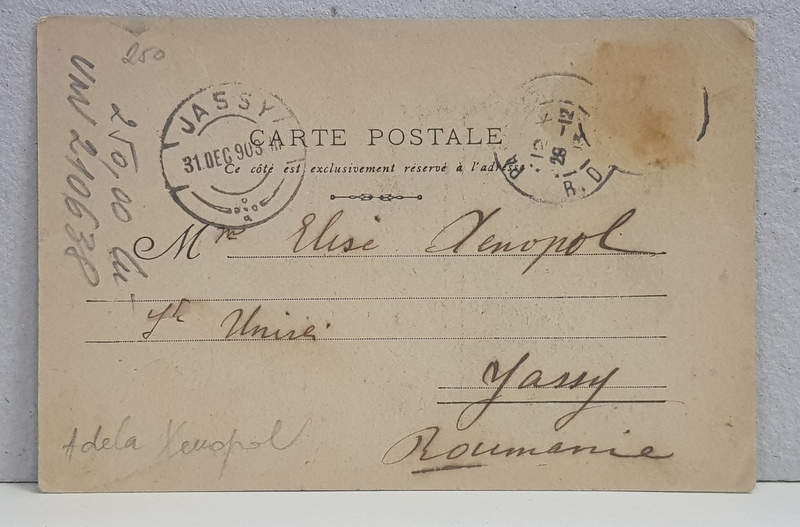 250
250,00 lei
VNV 210638
JASSY
31.DEC 903
28 -12
CARTE POSTALE
Ce côté est exclusivement réservé à l'adresse
Mme Elise Xenopol
Str Unirei
Jassy
Roumanie
Adela Xenopol